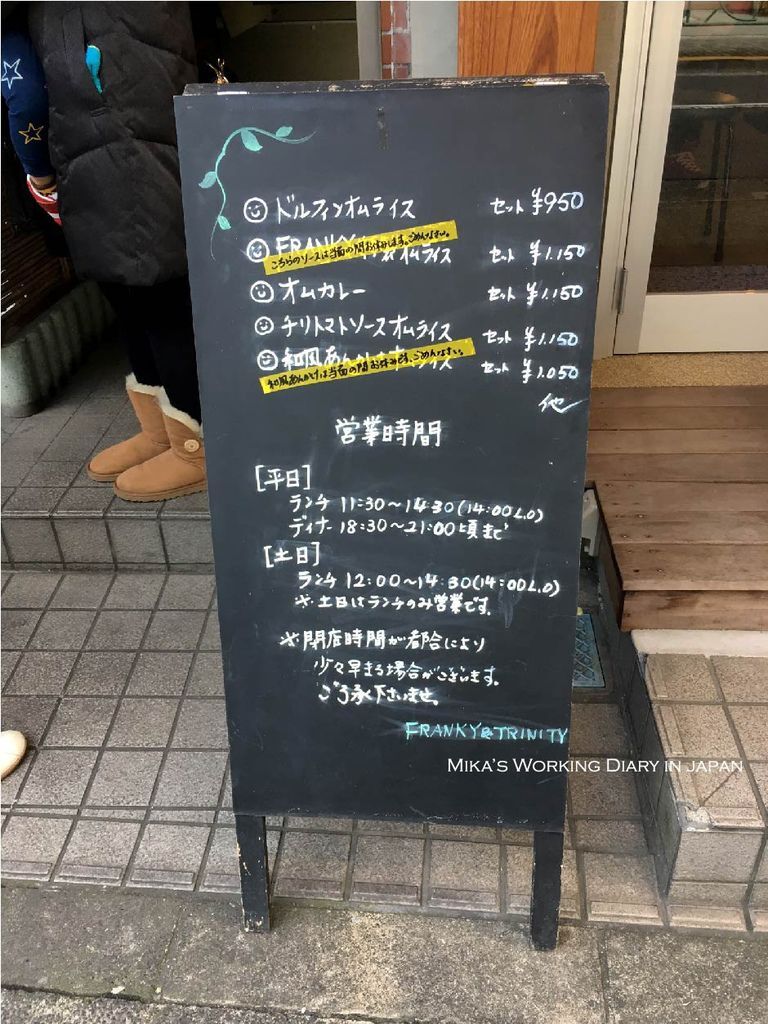 ドルフィンオムライス セット ¥950
FRANKY オムライス セット ¥1.150
こちらのソースは当面の間お休みします。ごめんなさい。
オムカレー セット ¥1.150
チリトマトソースオムライス セット ¥1.150
和風あんかけオムライス セット ¥1.050
和風あんかけは当面の間お休みです、ごめんなさい。
他
営業時間
[平日]
ランチ 11:30〜14:30(14:00L.O)
ディナー 18:30〜21:00頃まで
[土日]
ランチ 12:00〜14:30(14:00L.O)
※土日はランチのみ営業です。
※閉店時間が都合により
少々早まる場合がございます。
ご了承下さいませ。
FRANKY&TRINITY
MIKA'S WORKING DIARY IN JAPAN